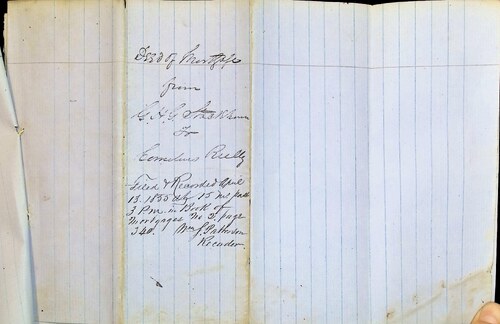 Deed of Mortgage
from
C. H. G.
To
Cornelius Reilly
Filed & Recorded April
13. 1855 at 15 m past
3 P.m. in Book of
Mortgages No 3. Page
340. Wm J. Patterson
Recorder.